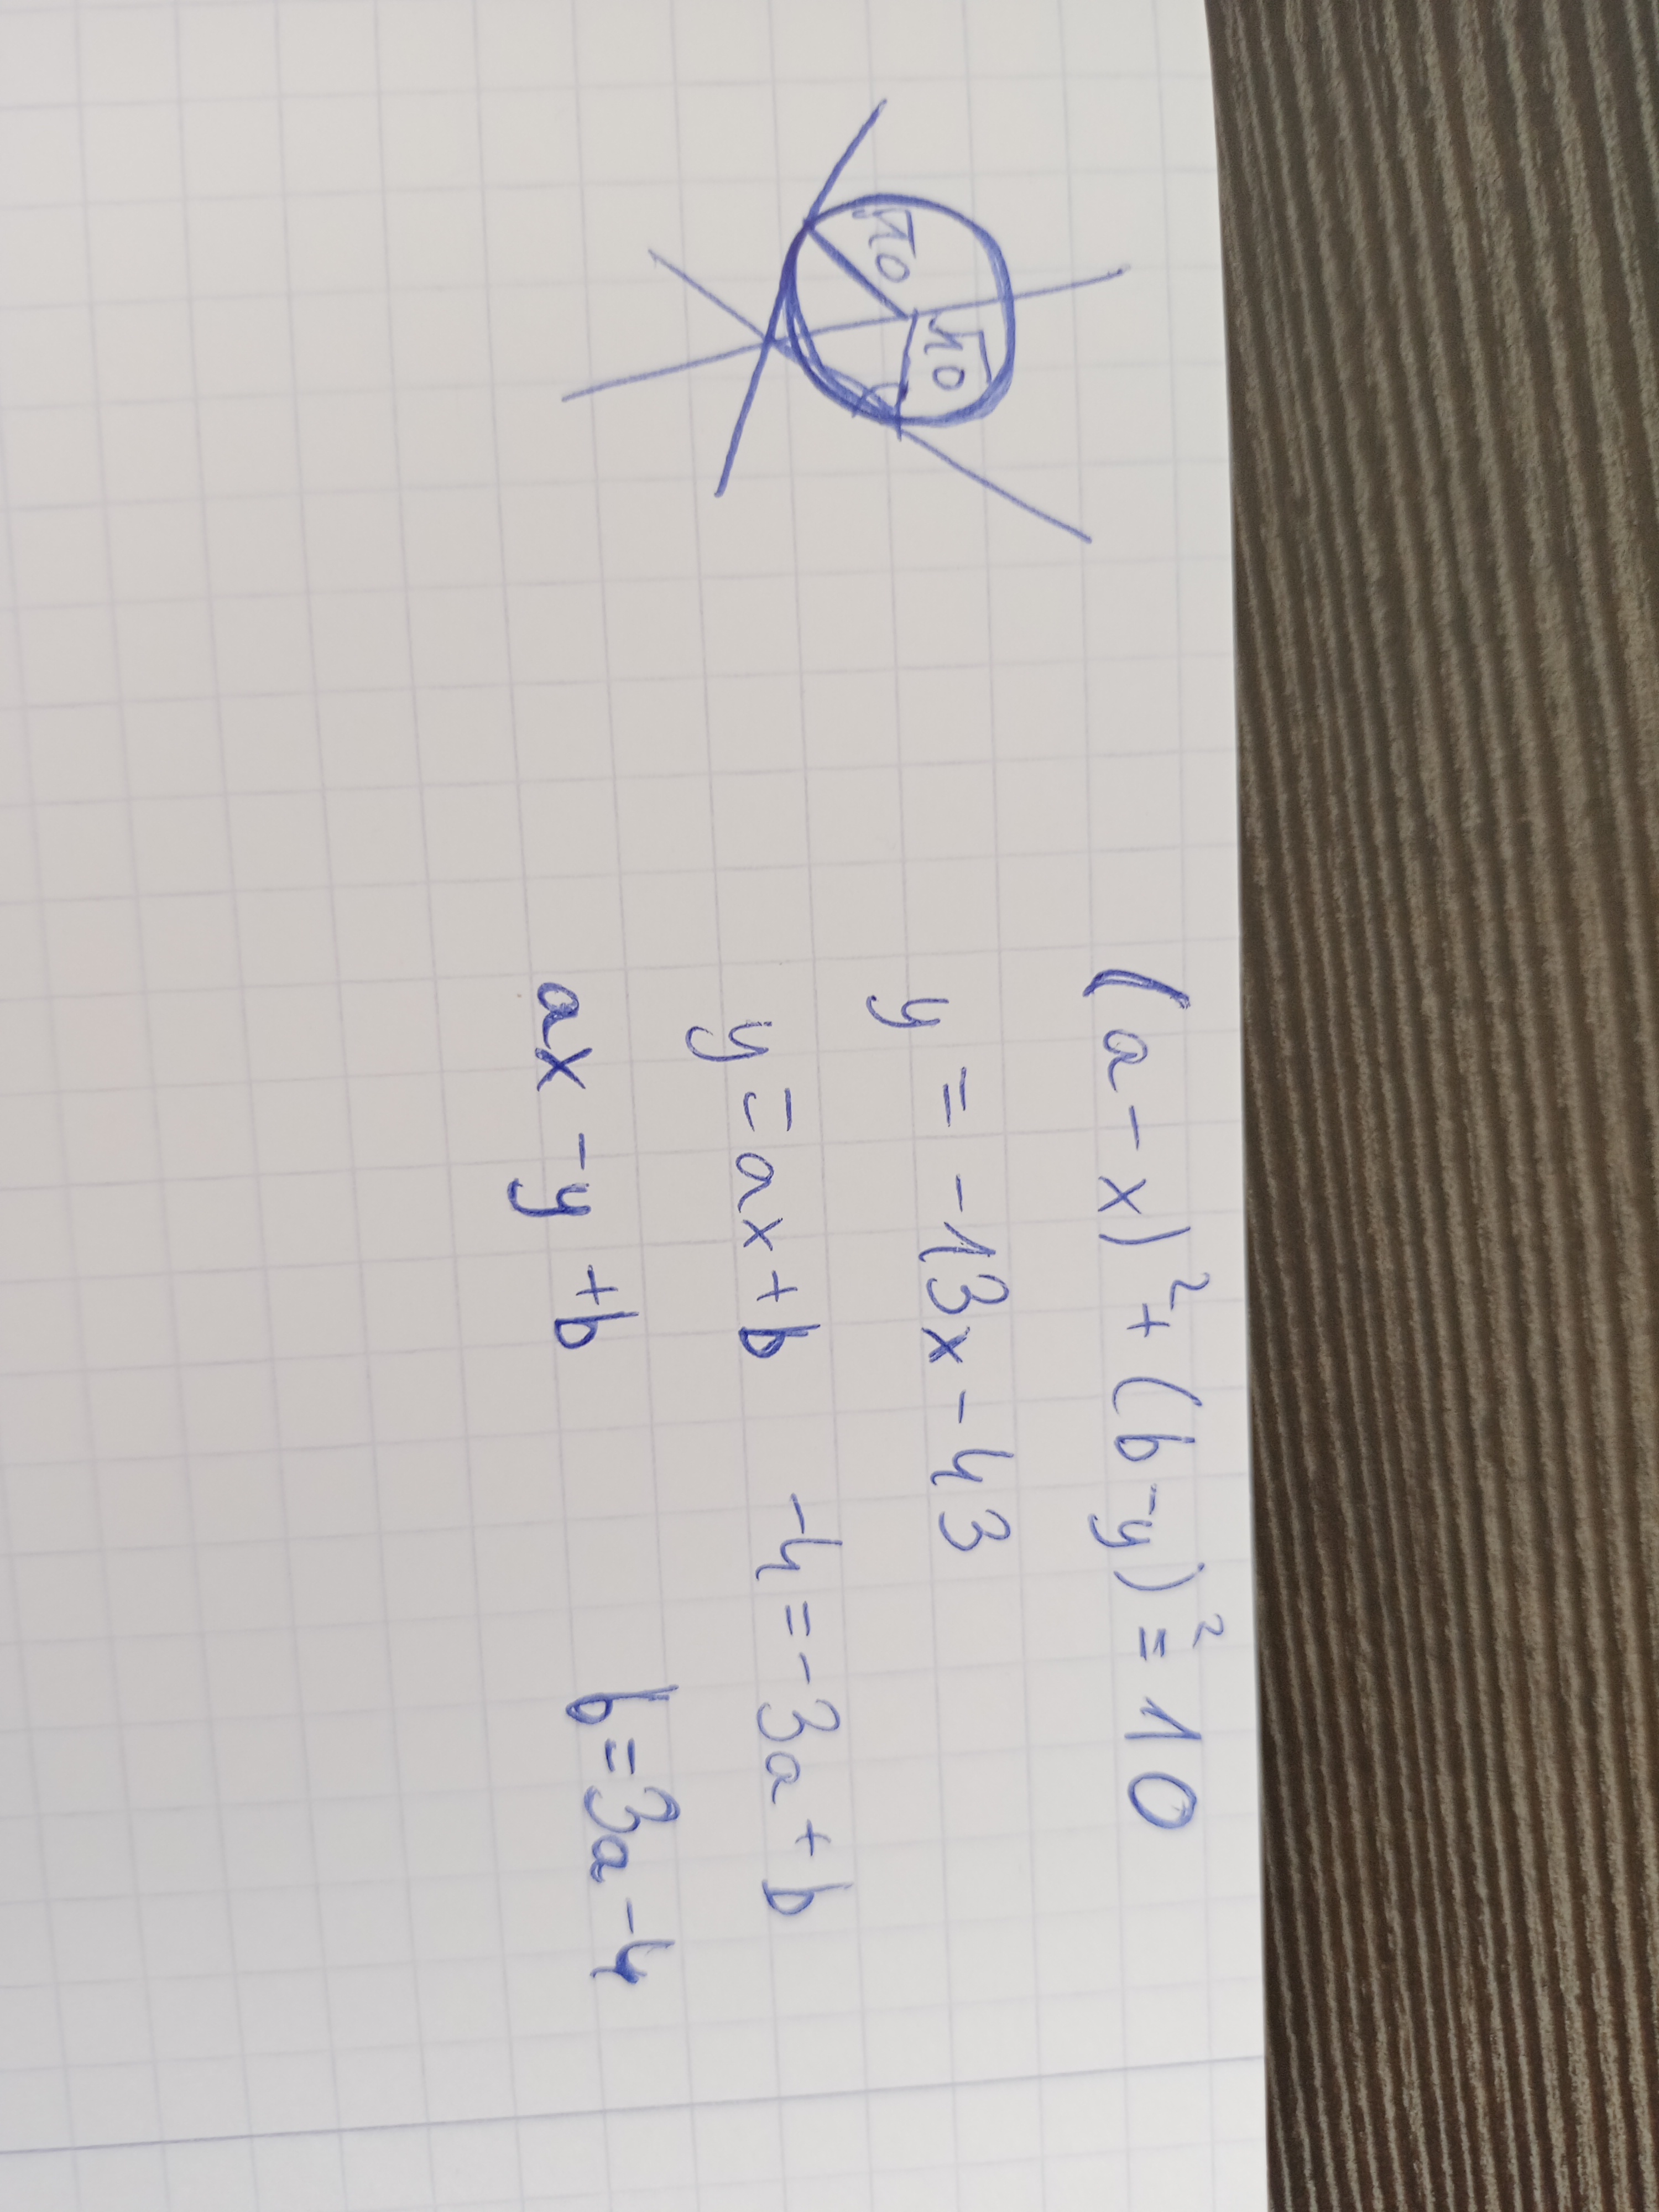 (a-x)²+(b-y)²=10
y=-13x-43
y=ax+b -4=-3a+b
ax-y+b b=3a-4
√10
√10